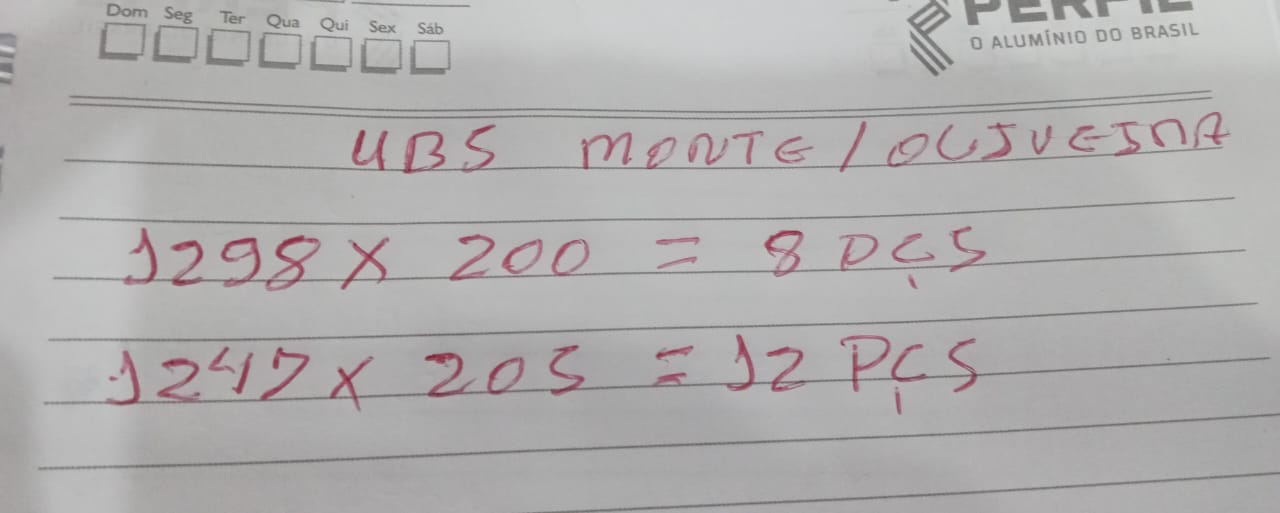 Dom Seg Ter Qua Qui Sex Sáb
PERFIL
O ALUMÍNIO DO BRASIL
UBS MONTE / OLIVEIRA
1298 X 200 = 8 PÇS
1247 X 205 = 12 PÇS